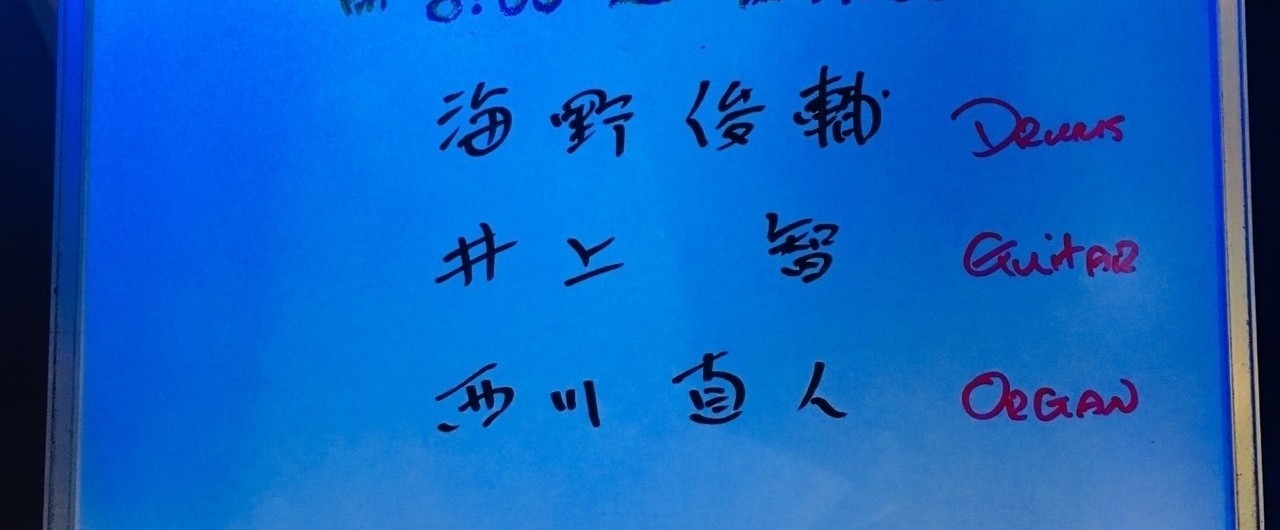 海野俊輔 Drums
井上 智 Guitar
西川直人 Organ